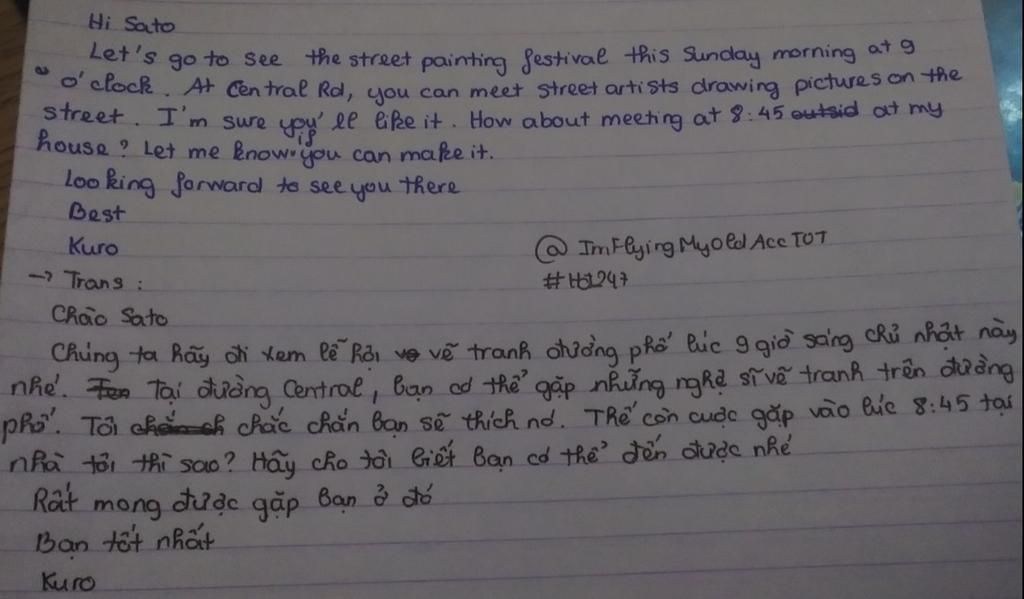 Hi Sato
Let's go to see the street painting festival this Sunday morning at 9
o'clock. At Central Rd, you can meet street artists drawing pictures on the
street. I'm sure you'll like it. How about meeting at 8:45 outsid at my
house? Let me know if you can make it.
Looking forward to see you there
Best
Kuro
@ImFlyingMyOldAccTOT
→ Trans:
Chào Sato
Chúng ta hãy đi xem lễ hội vẽ vẽ tranh đường phố lúc 9 giờ sáng chủ nhật này
nhé. Tại đường Central, bạn có thể gặp những nghệ sĩ vẽ tranh trên đường
phố. Tôi chắc chắn bạn sẽ thích nó. Thế còn cuộc gặp vào lúc 8:45 tại
nhà tôi thì sao? Hãy cho tôi biết bạn có thể đến được nhé
Rất mong được gặp bạn ở đó
Bạn tốt nhất
Kuro